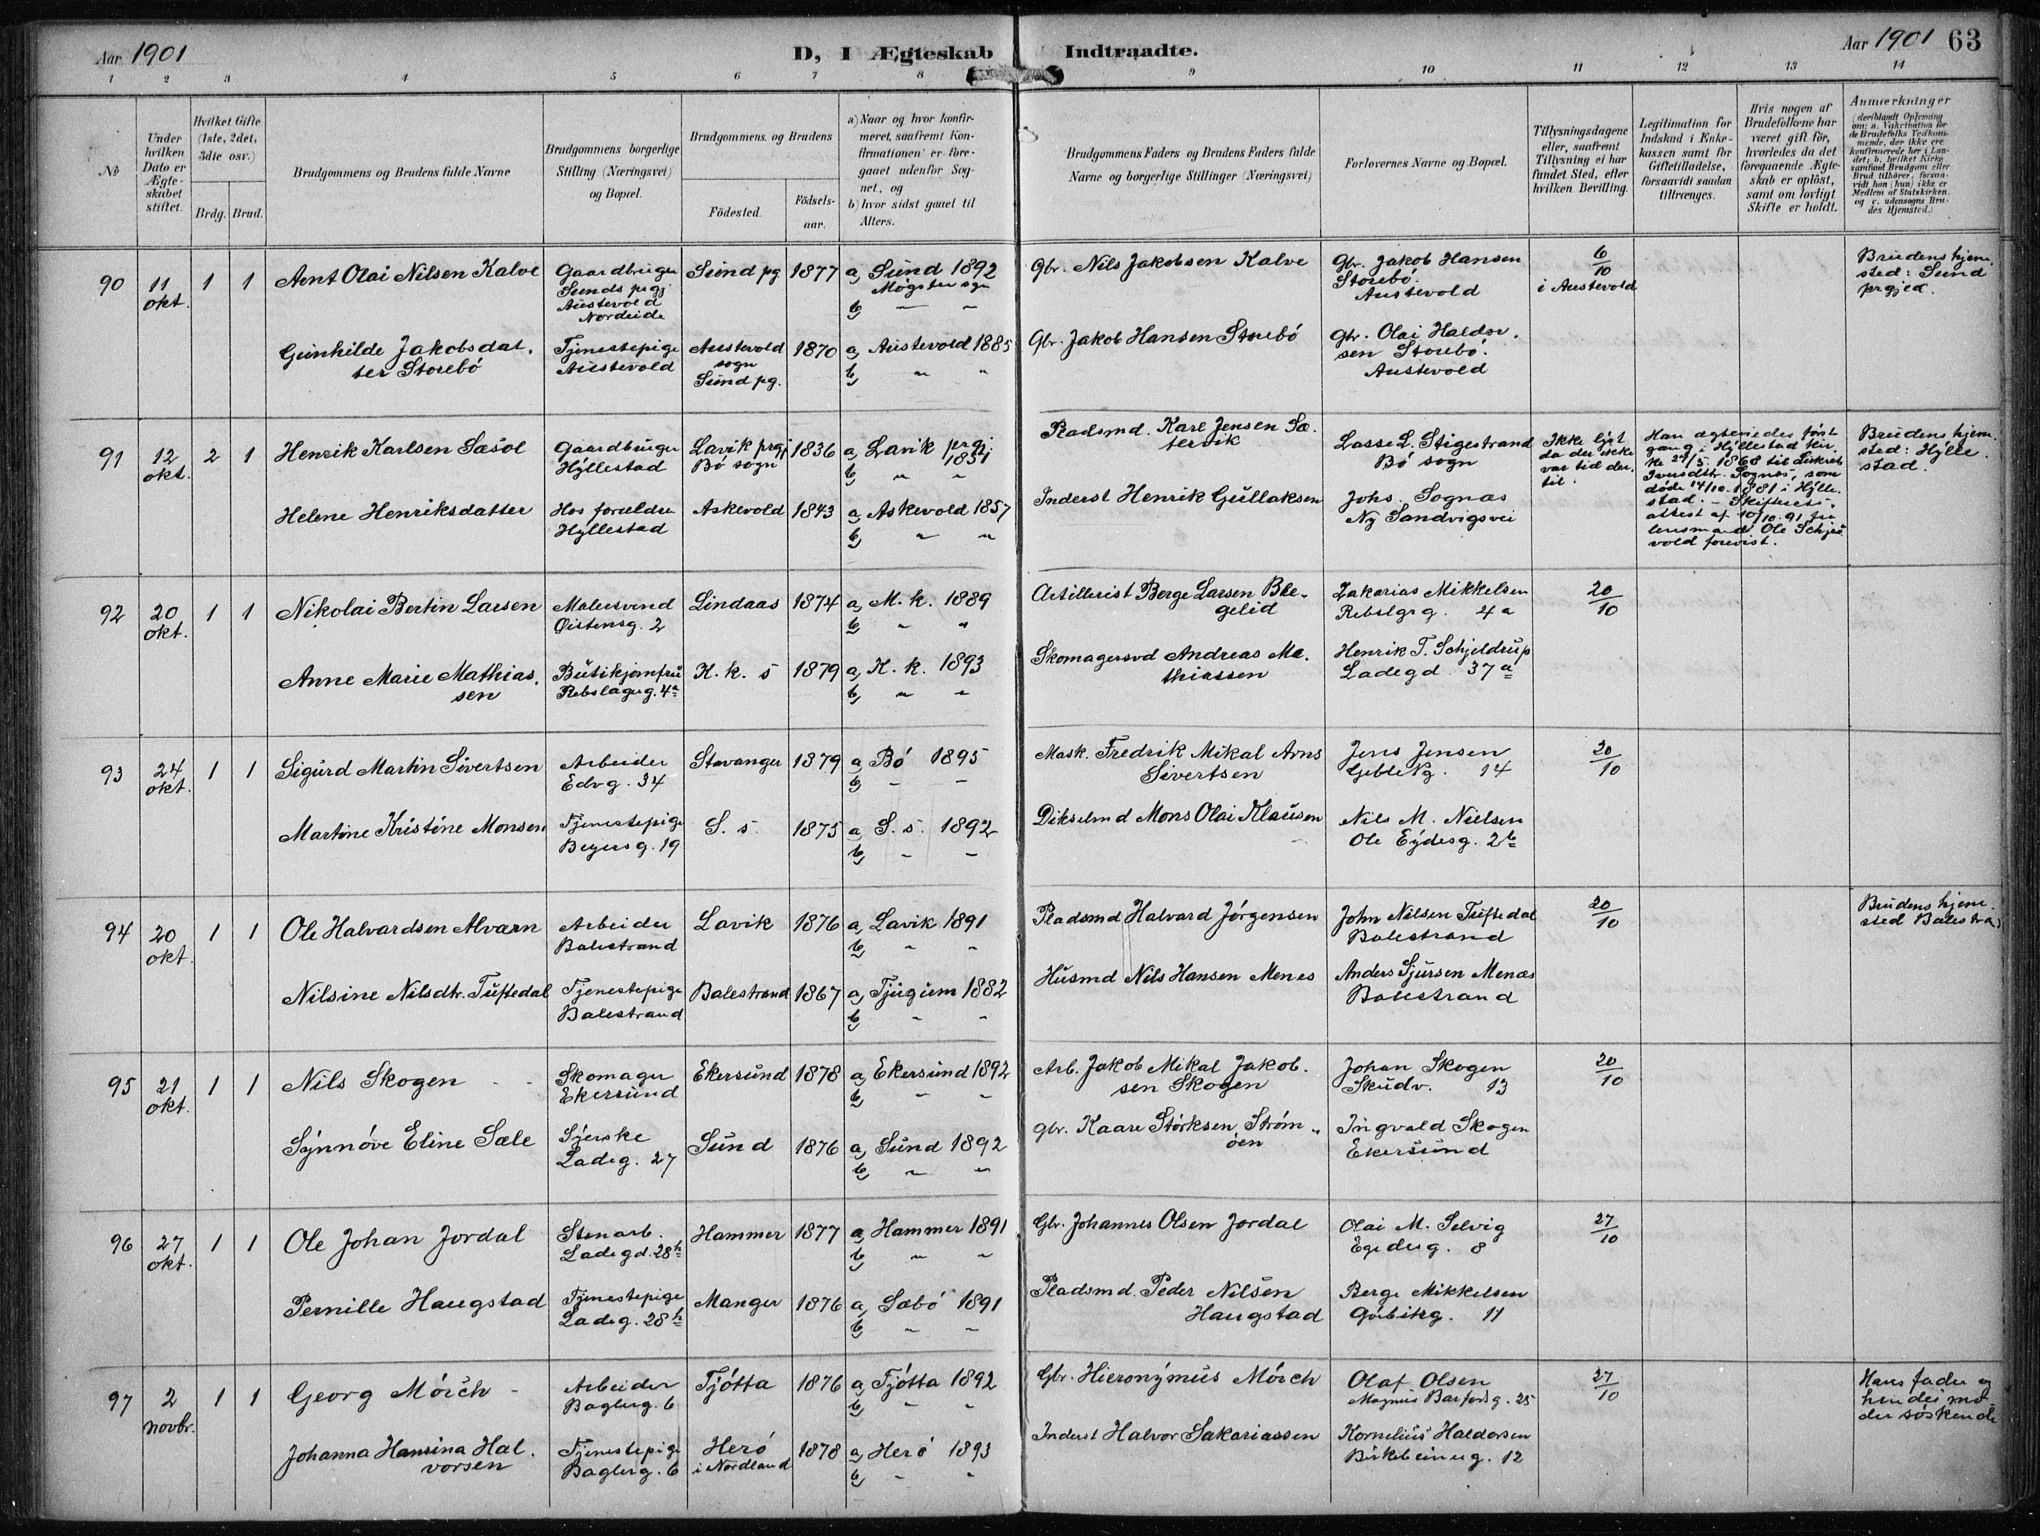 Aar 1901
D, I Ægteskab Indtraadte.
Aar 1901 63
1 2 3 4 5 6 7 8 9 10 11 12 13 14
No
Under hvilken Dato er Ægteskabet stiftet.
Hvilket Gifte (1ste, 2det, 3die osv.)
Brdg. Brud.
Brudgommens og Brudens fulde Navne
Brudgommens borgerlige Stilling (Næringsvei) og Bopæl.
Brudgommens og Brudens
Fødested.
Fødselsaar.
a) Naar og hvor konfirmeret, saafremt Konfirmationen er foregaaet udenfor Sognet, og
b) hvor sidst gaaet til Alters.
Brudgommens Faders og Brudens Faders fulde Navne og borgerlige Stillinger (Næringsvei)
Forlovernes Navne og Bopæl.
Tillysningsdagene eller, saafremt Tillysning ei har fundet Sted, efter hvilken Bevilling.
Legitimation for Indskud i Enkekassen samt for Giftetilladelse, forsaavidt saadan tiltrænges.
Hvis nogen af Brudefolkene har været gift før, hvorledes da det foregaaende Ægteskab er opløst, samt om lovligt Skifte er holdt.
Anmærkninger
(deriblandt Oplysning om: a. Vakcination for de Brudefolks Vedkommende, der ikke ere konfirmerede her i Landet; b. hvilket Kirkesamfund Brudgom eller Brud tilhører, forsaavidt han (hun) ikke er Medlem af Statskirken, og c. udensogns Brudes Hjemsted.)
90 11 okt. 1 1
Arnt Olai Nilsen Kalve
Gaardbruger
Sunds prgj
Austevold
Nordeide
Sund pg 1877
a, Sund 1892
Møgster sgn
b, " "
Gbr. Nils Jakobsen Kalve
Gbr. Jakob Hansen
Storebö.
Austevold
6/10
i Austevold
Brudens hjem
sted: Sund
prgjed.
Gunhilde Jakobsdat
ter Storebö
Tjenestepige
Austevold
Austevold
sogn
Sund pg.
1870
a, Austevold 1885
b, " "
Gbr. Jakob Hansen Storebö
Gbr. Olai Haldor
sen Storebö.
Austevold
91 12 okt. 2 1
Henrik Karlsen Sæsol
Gaardbruger
Hyllestad
Lavik prgj
Bö sogn
1836
a, Lavik prgj
1851
b, " "
Pladsmd. Karl Jensen Sæ
tervik
Lasse L. Stigestrand
Bö sogn
Ikke lyst
da der ikke
var tid der
til.
Han ægteviedes först
gang i Hyllestad kir
ke 24/5 1868 til Liskreb
Iversdtr. Sognes, som
döde 14/10 1881 i Hylle
stad. Skifteds
attest af 10/10.91 fra
lensmand Ole Schjes
vold forevist.
Brudens hjem
sted: Hylle
stad.
Helene Henriksdatter
Hos forældre
Hyllestad
Askevold 1843
a, Askevold 1857
b, " "
Inderst Henrik Gullaksen
Johs. Sognas
Ny Sandvigsvei
92 20 okt. 1 1
Nikolai Bertin Larsen
Malersvend
Øistensg. 2
Lindaas 1874
a, M. k. 1889
b, " "
Artillerist Berge Larsen Ble
gelid
Zakarias Mikkelsen
Rebslgrg. 4a
20/10
Anne Marie Mathias
sen
Butikjomfru
Rebslagerg. 4a
K. k. s 1879
a, K. k. 1893
b, " "
Skomagersvd Andreas Ma
thiassen
Henrik T. Schjeldrup
Ladegd. 37a
93 24 okt. 1 1
Sigurd Martin Sivertsen
Arbeider
Edvg. 34
Stavanger 1879
a, Bö 1895
b, " "
Mask. Fredrik Mikal Arns
Sivertsen
Jens Jensen
Gebleng. 14
20/10
Martine Kristine Monsen
Tjenestepige
Beyersg. 19
S. s. 1875
a, S. s. 1892
b, " "
Dikselmd Mons Olai Klausen
Nils M. Nielsen
Ole Eydesg. 2b
94 20 okt. 1 1
Ole Halvardsen Alværn
Arbeider
Balestrand
Lavik 1876
a, Lavik 1891
b, " "
Pladsmd Halvard Jörgensen
John Nilsen Tuftedal
Balestrand
20/10
Brudens hjem
sted Balestra
Nilsine Nilsdtr. Tuftedal
Tjenestepige
Balestrand
Balestrand 1867
a, Tjugum 1882
b, " "
Husmd Nils Hansen Menes
Anders Sjursen Menæs
Balestrand
95 21 okt. 1 1
Nils Skogen
Skomager
Ekersund
Ekersund 1878
a, Ekersund 1892
b, " "
Arb. Jakob Mikal Jakob
sen Skogen
Johan Skogen
Skudv. 13
20/10
Synnöve Eline Sæle
Syerske
Ladeg. 27
Sund 1876
a, Sund 1892
b, " "
gbr. Kaare Störksen Ström
öen
Ingvald Skogen
Ekersund
96 27 okt. 1 1
Ole Johan Jordal
Stenarb.
Ladegd. 28h
Hammer 1877
a, Hammer 1891
b, " "
Gbr. Johannes Olsen Jordal
Olai M. Selvig
Egederg. 8
27/10
Pernille Haugstad
Tjenestepige
Ladeg. 28h
Manger 1876
a, Sæbö 1891
b, " "
Pladsmd. Peder Nilsen
Haugstad
Berge Mikkelsen
Görbitzg. 11
97 2 novbr. 1 1
Georg Mörch
Arbeider
Baglerg. 6
Tjötta 1876
a, Tjötta 1892
b, " "
Gbr. Hieronymus Mörch
Olaf Olsen
Magnus Barfodsg. 25
27/10
Hans fader og
hendes mo
der söskende
Johanna Hansina Hal
vorsen
Tjenestepige
Baglerg. 6
Herö
i Nordland
1878
a, Herö 1893
b, " "
Inderst Halvor Sakariassen
Kornelius Haldorsen
Birkebeinerg. 12